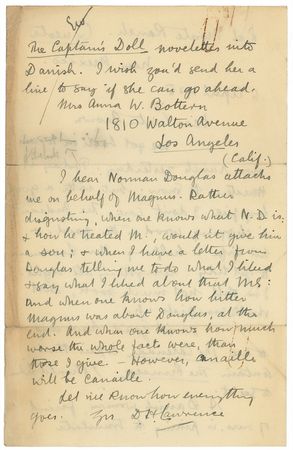 The Captain's Doll novelettes into
Danish. I wish you'd send her a
line to say if she can go ahead.
Mrs Anna W. Bottern
1810 Walton Avenue
Los Angeles
(Calif.)
I hear Norman Douglas attacks
me on behalf of Magnus. Rather
disgusting, when one knows what N. D. is:
& how he treated M., would give him
a sou; & when I have a letter from
Douglas telling me to do what I liked
& say what I liked about that MS:
and when one knows how bitter
Magnus was about Douglas, at the
end. And when one knows how much
worse the whole facts were, than
those I give. — However, canaille
will be canaille.
Let me know how everything
goes. Yrs. D H Lawrence